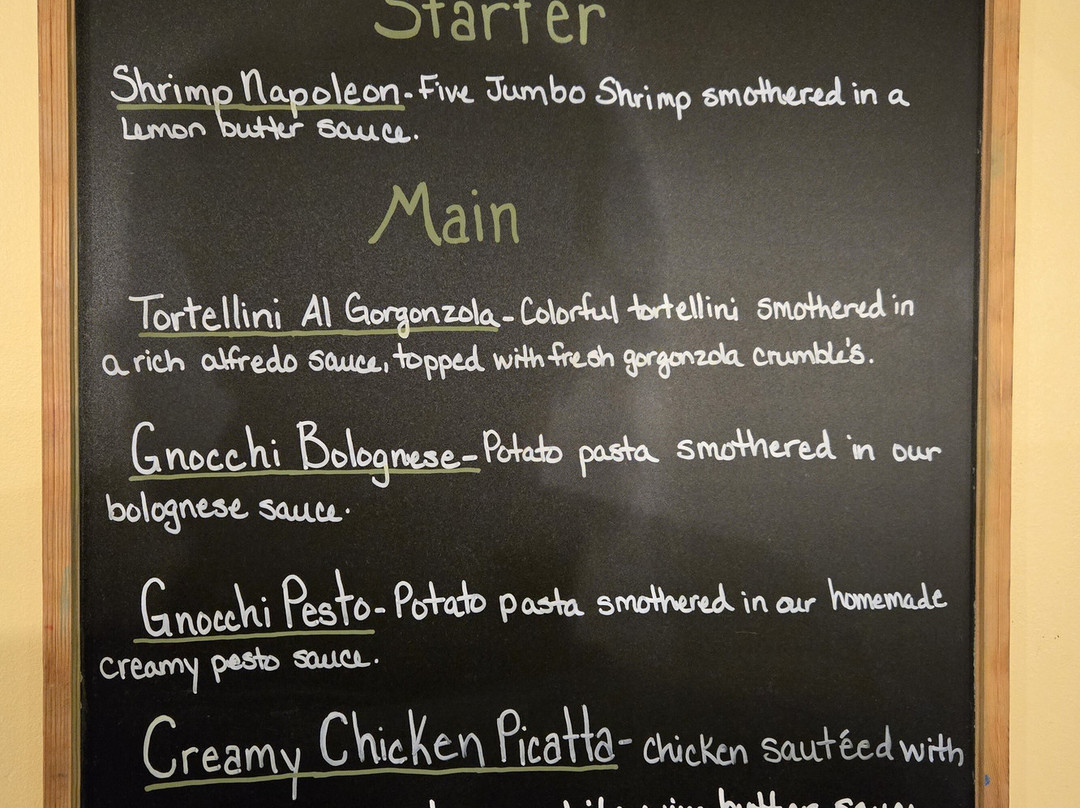 Starter
Shrimp Napoleon-Five Jumbo Shrimp smothered in a
Lemon butter sauce.
Main
Tortellini Al Gorgonzola-Colorful tortellini smothered in
a rich alfredo sauce, topped with fresh gorgonzola crumble's.
Gnocchi Bolognese-Potato pasta smothered in our
bolognese sauce.
Gnocchi Pesto-Potato pasta smothered in our homemade
creamy pesto sauce.
Creamy Chicken Picatta-chicken sautéed with
wine butter sauce